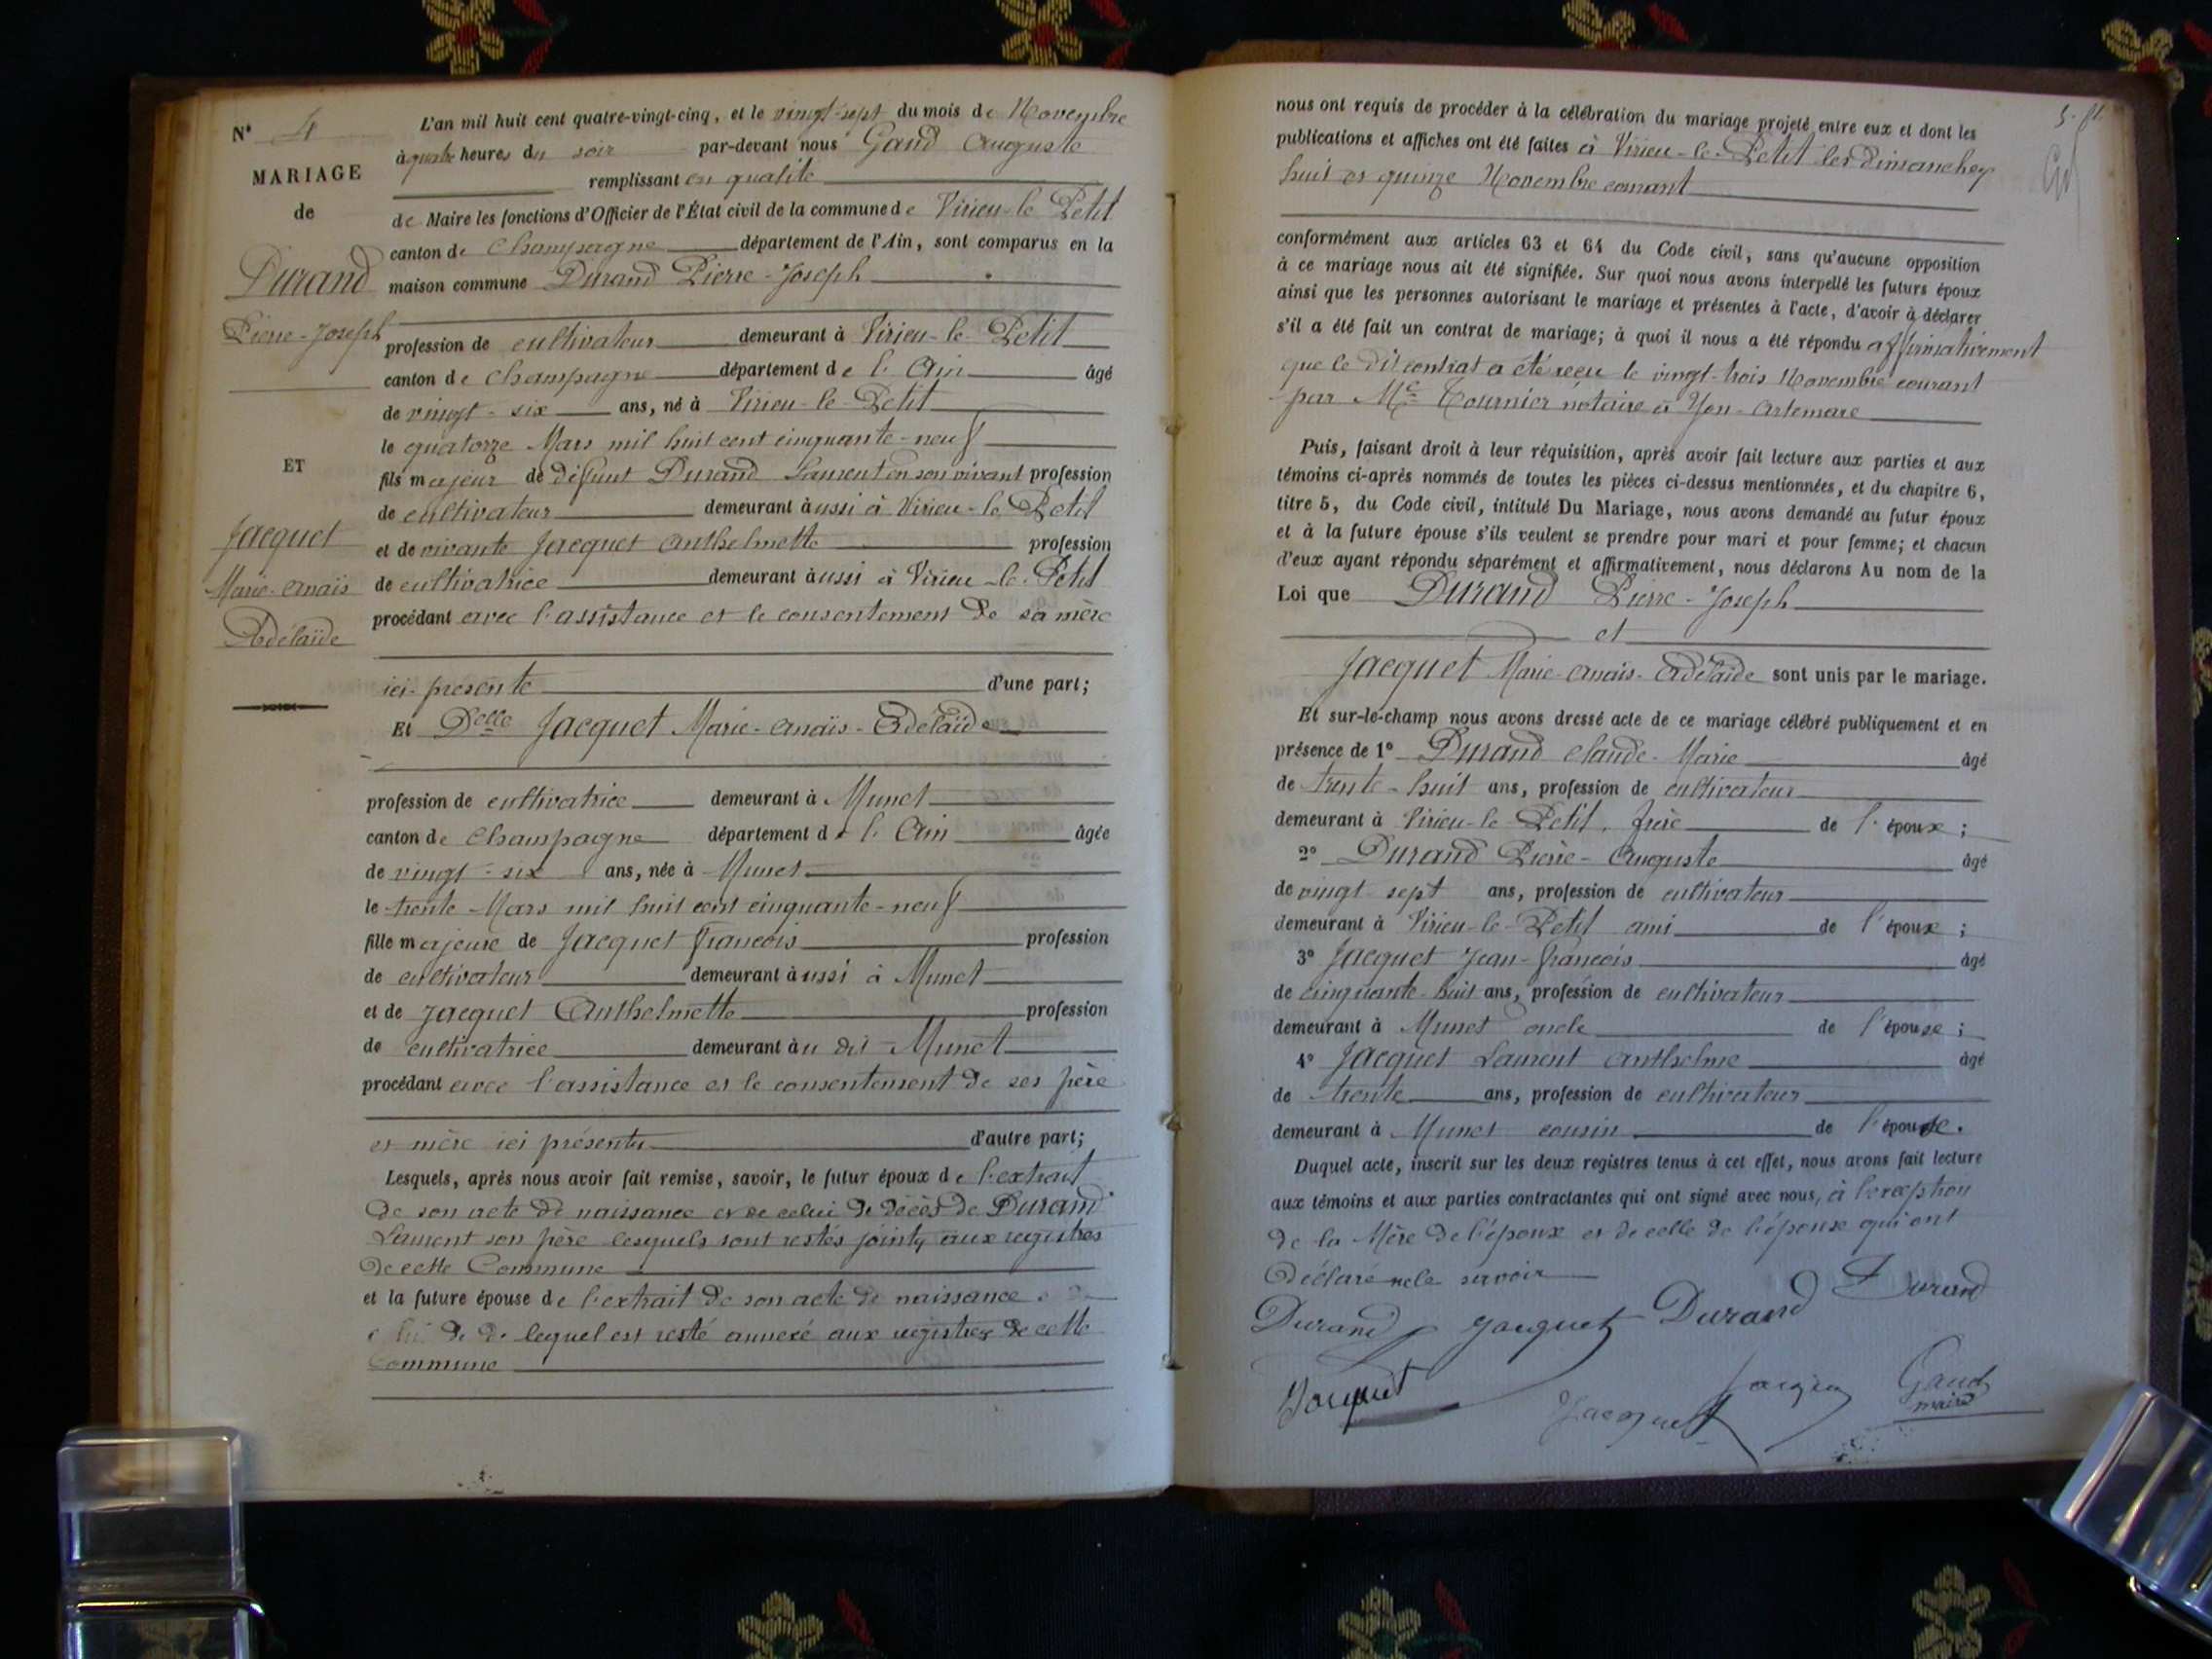 N° 4
MARIAGE
de
Durand
Pierre-Joseph
ET
Jacquet
Marie-Anaïs
Adélaïde
L'an mil huit cent quatre-vingt-cinq, et le vingt-sept du mois de Novembre
à quatre heures du soir par-devant nous Gaud Auguste
remplissant en qualité
de Maire les fonctions d'Officier de l'État civil de la commune de Virieu-le-Petit
canton de Champagne département de l'Ain, sont comparus en la
maison commune Durand Pierre-Joseph
profession de cultivateur demeurant à Virieu-le-Petit
canton de Champagne département de l'Ain âgé
de vingt-six ans, né à Virieu-le-Petit
le quatorze Mars mil huit cent cinquante-neuf
fils majeur de défunt Durand Laurent en son vivant profession
de cultivateur demeurant aussi à Virieu-le-Petit
et de vivante Jacquet Anthelmette profession
de cultivatrice demeurant aussi à Virieu-le-Petit
procédant avec l'assistance et le consentement de sa mère
ici présente d'une part;
Et Delle Jacquet Marie-Anaïs-Adélaïde
profession de cultivatrice demeurant à Munet
canton de Champagne département de l'Ain âgée
de vingt-six ans, née à Munet
le trente Mars mil huit cent cinquante-neuf
fille majeure de Jacquet François profession
de cultivateur demeurant aussi à Munet
et de Jacquet Anthelmette profession
de cultivatrice demeurant au dit Munet
procédant avec l'assistance et le consentement de ses père
et mère ici présents d'autre part;
Lesquels, après nous avoir fait remise, savoir, le futur époux de l'extrait
de son acte de naissance et de celui de décès de Durand
Laurent son père lesquels sont restés joints aux registres
de cette Commune
et la future épouse de l'extrait de son acte de naissance
lequel est resté annexé aux registres de cette
Commune
nous ont requis de procéder à la célébration du mariage projeté entre eux et dont les
publications et affiches ont été faites à Virieu-le-Petit les dimanches
huit et quinze Novembre courant
conformément aux articles 63 et 64 du Code civil, sans qu'aucune opposition
à ce mariage nous ait été signifiée. Sur quoi nous avons interpellé les futurs époux
ainsi que les personnes autorisant le mariage et présentes à l'acte, d'avoir à déclarer
s'il a été fait un contrat de mariage; à quoi il nous a été répondu affirmativement
que le dit contrat a été reçu le vingt-trois Novembre courant
par Me Tournier notaire à Yon-Artemare
Puis, faisant droit à leur réquisition, après avoir fait lecture aux parties et aux
témoins ci-après nommés de toutes les pièces ci-dessus mentionnées, et du chapitre 6,
titre 5, du Code civil, intitulé Du Mariage, nous avons demandé au futur époux
et à la future épouse s'ils veulent se prendre pour mari et pour femme; et chacun
d'eux ayant répondu séparément et affirmativement, nous déclarons Au nom de la
Loi que Durand Pierre-Joseph
et
Jacquet Marie-Anaïs-Adélaïde sont unis par le mariage.
Et sur-le-champ nous avons dressé acte de ce mariage célébré publiquement et en
présence de 1° Durand Claude-Marie âgé
de trente-huit ans, profession de cultivateur
demeurant à Virieu-le-Petit, frère de l'époux;
2° Durand Pierre-Auguste âgé
de vingt sept ans, profession de cultivateur
demeurant à Virieu-le-Petit ami de l'époux;
3° Jacquet Jean-François âgé
de cinquante-huit ans, profession de cultivateur
demeurant à Munet oncle de l'épouse;
4° Jacquet Laurent Anthelme âgé
de trente ans, profession de cultivateur
demeurant à Munet cousin de l'épouse.
Duquel acte, inscrit sur les deux registres tenus à cet effet, nous avons fait lecture
aux témoins et aux parties contractantes qui ont signé avec nous, à l'exception
de la Mère de l'époux et de celle de l'épouse qui ont
déclaré ne le savoir
Durand Jacquet Durand Durand
Jacquet Jacquet Gaud
maire